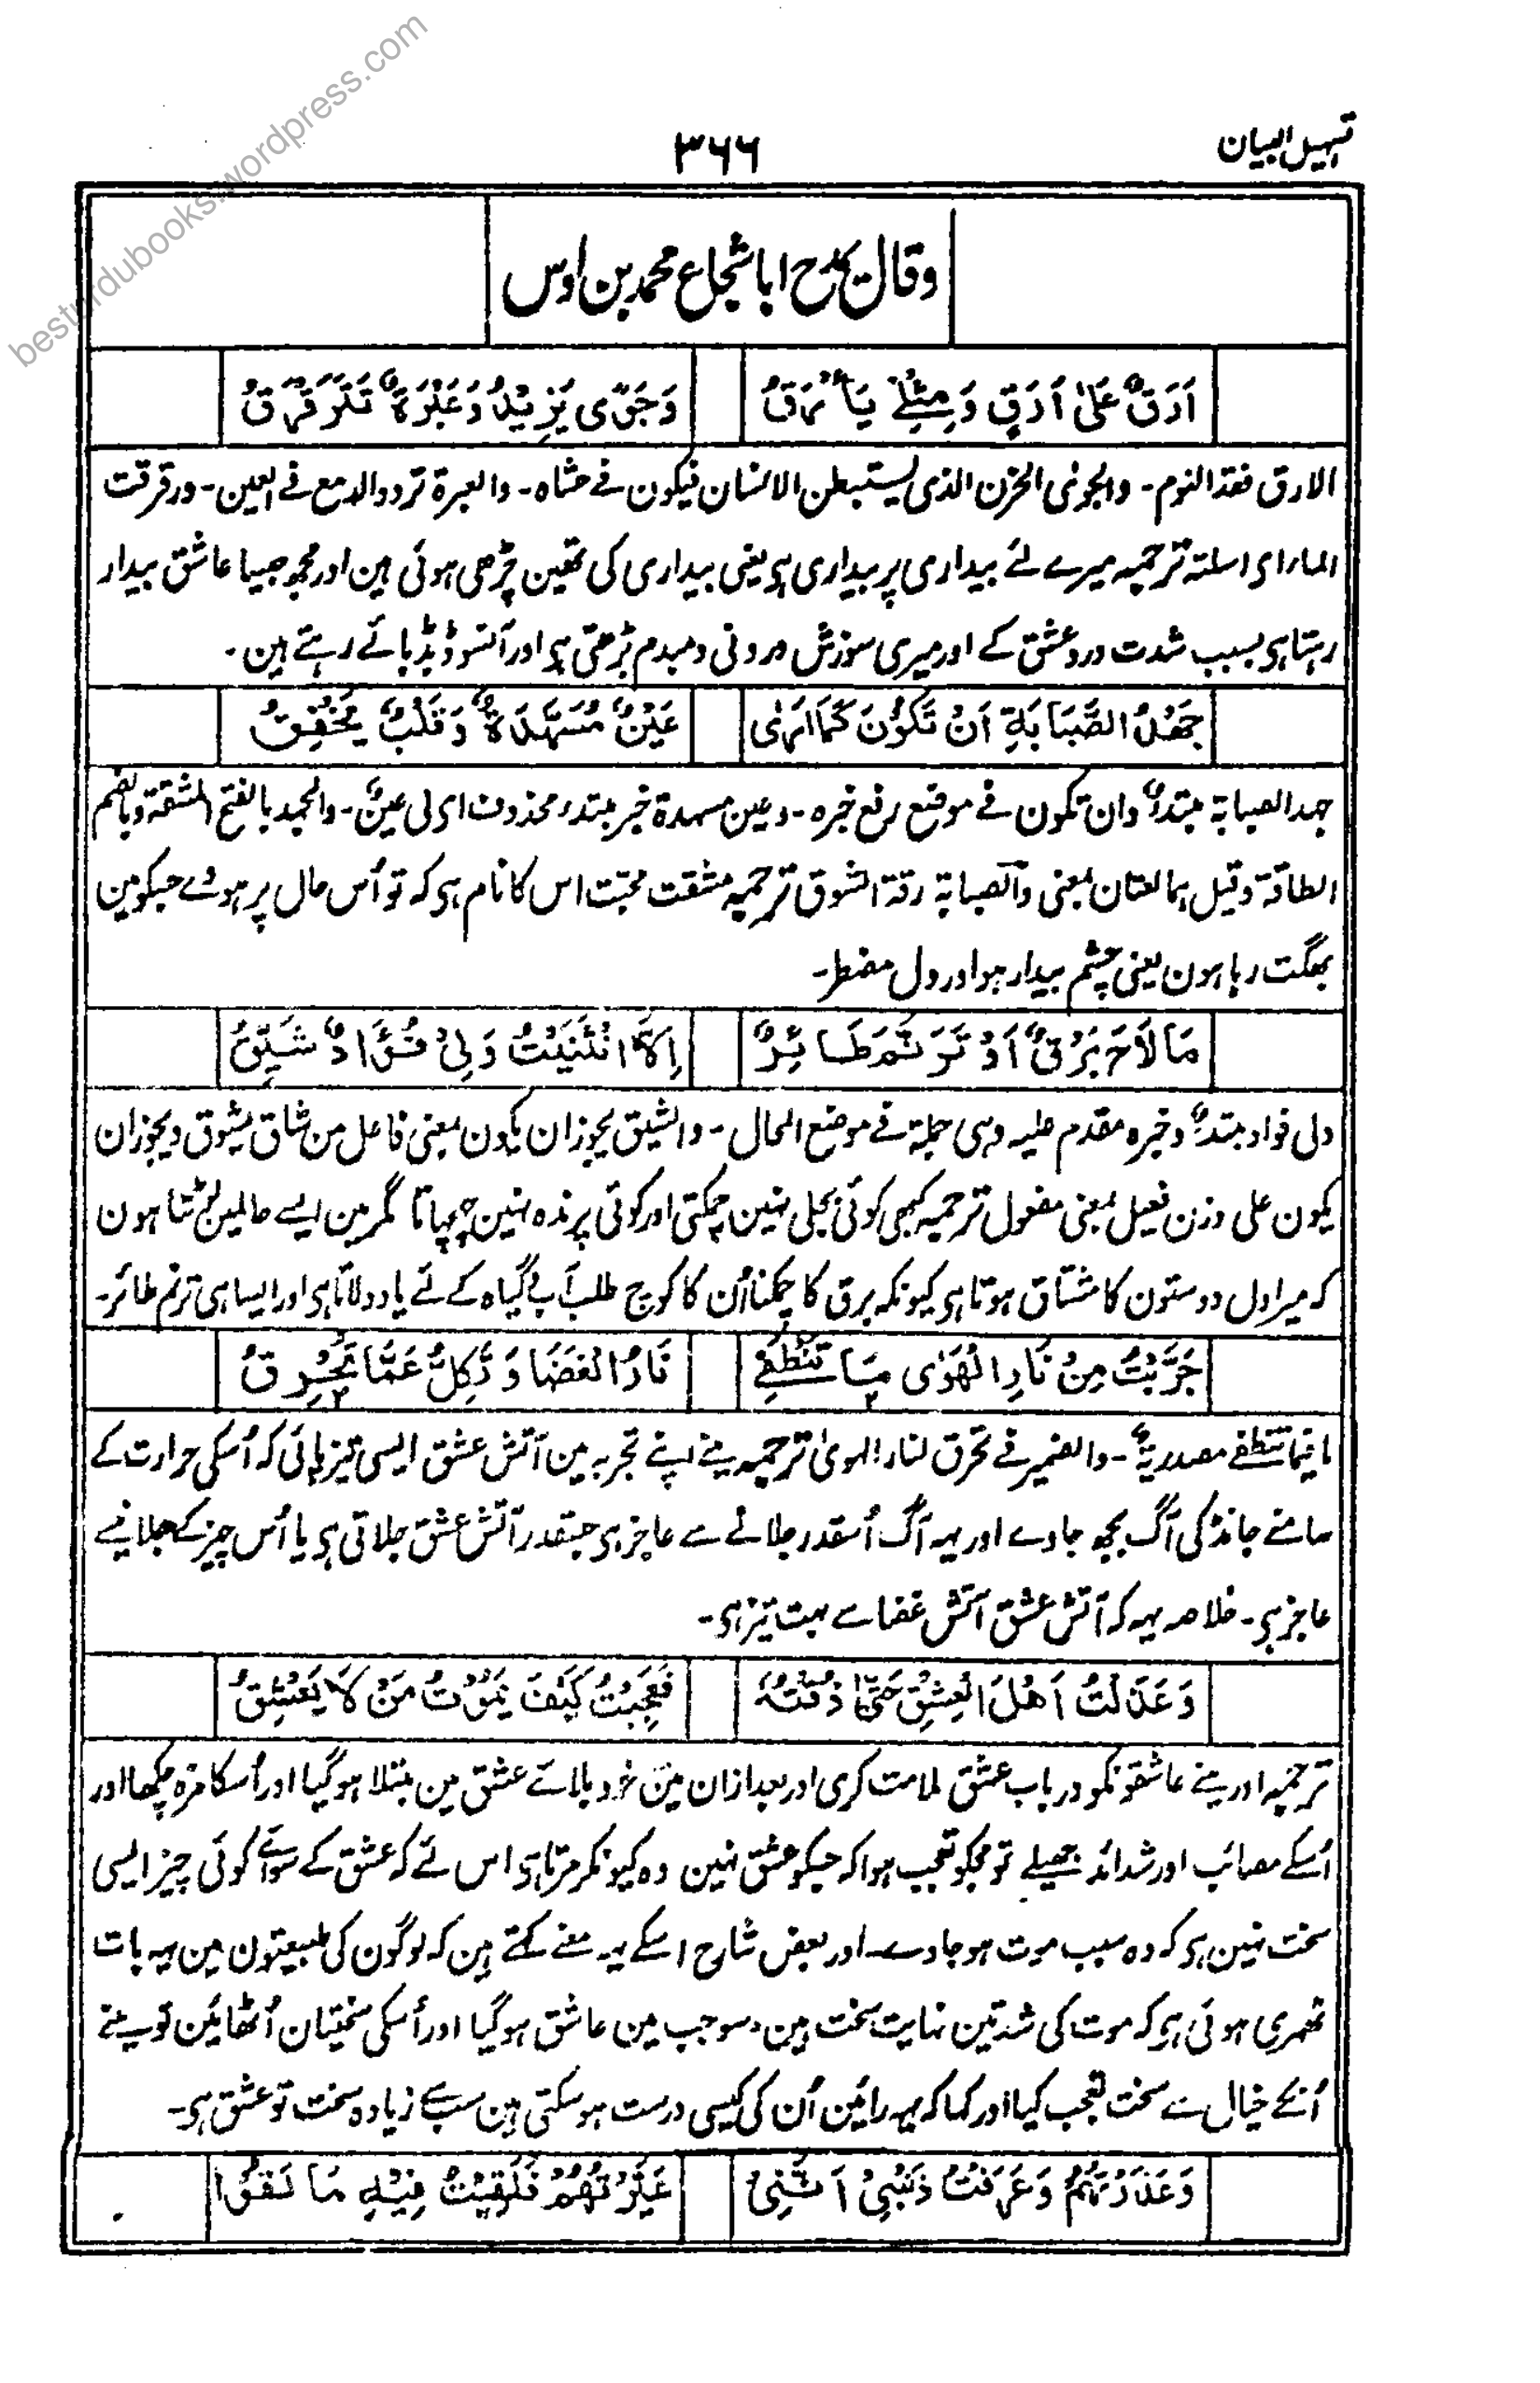 تسہیل البیان
۳۶۶
besturdubooks.wordpress.com
وقال یمدح ابا شجاع محمد بن اوس
اَرَقٌ عَلٰی اَرَقٍ وَمِثْلِیْ یَأْرَقُ وَجَوًی یَزِیْدُ وَعَبْرَةٌ تَتَرَقْرَقُ
الارق فقد النوم۔ والجوی الحزن الذی یستبطن الانسان فیکون فے حشاہ۔ والعبرة تردد الدمع فے العین۔ ورقرقت
الماء ای اسلتہ ترجمہ میرے لئے بیداری پر بیداری ہی یعنی بیداری کی تھین چڑھی ہوئی ہین اور مجھ جیسا عاشق بیدار
رہتا ہی بسبب شدت درد عشق کے اور میری سوزش درونی دمبدم بڑھتی ہی اور آنسو ڈبڈبائے رہتے ہین۔
جَهْدُ الصَّبَابَةِ اَنْ تَکُوْنَ کَمَا اَرٰی عَیْنٌ مُسَهَّدَةٌ وَقَلْبٌ یَخْفِقُ
جہد الصبابة مبتدأ وان تکون فے موضع رفع خبرہ۔ وعین مسہدة خبر مبتدء محذوف ای لی عین۔ والجہد بالفتح المشقة وبالضم
الطاقة وقیل ہما لغتان بمعنی والصبابة رقة الشوق ترجمہ مشقت محبت اس کا نام ہی کہ تو اُس حال پر ہووے جسکو مین
بھگت رہا ہون یعنی چشم بیدار ہو اور دل مضطر۔
مَا لَاحَ بَرْقٌ اَوْ تَرَنَّمَ طَائِرٌ اِلَّا انْثَنَیْتُ وَلِیْ فُؤَادٌ شَیِّقُ
ولی فواد مبتدأ وخبرہ مقدم علیہ وہی جملة فے موضع الحال۔ والشیق یجوز ان یکون بمعنی فاعل من شاق یشوق ویجوز ان
یکون علی وزن فعیل بمعنی مفعول ترجمہ کبھی کوئی بجلی نہین چمکتی اور کوئی پرندہ نہین چہچہاتا مگر مین ایسے حالمین لوٹتا ہون
کہ میرا دل دوستون کا مشتاق ہوتا ہی کیونکہ برق کا چمکنا اُن کا کوچ طلب آب و گیاہ کے لئے یاد دلاتا ہی اور ایسا ہی ترنم طائر۔
جَرَّبْتُ مِنْ نَارِ الْهَوٰی مَا تَنْطَفِیْ نَارُ الْغَضَا وَتَکِلُّ عَمَّا تُحْرِقُ
ما فیما تنطفے مصدریة۔ والضمیر فے تحرق لنار الہویٰ ترجمہ مینے اپنے تجربہ مین آتش عشق ایسی تیز پائی کہ اُسکی حرارت کے
سامنے جانڈ کی آگ بجھ جاوے اور یہہ آگ اُسقدر جلانے سے عاجز ہی جسقدر آتش عشق جلاتی ہی یا اُس چیز کے جلانیسے
عاجز ہی۔ خلاصہ یہہ کہ آتش عشق آتش غضا سے بہت تیز ہی۔
وَعَذَلْتُ اَهْلَ الْعِشْقِ حَتّٰی ذُقْتُهٗ فَعَجِبْتُ کَیْفَ یَمُوْتُ مَنْ لَا یَعْشِقُ
ترجمہ اور مینے عاشقونکو درباب عشق ملامت کری اور بعد ازان مین خود بلائے عشق مین مبتلا ہو گیا اور اُسکا مزہ چکھا اور
اُسکے مصائب اور شدائد جھیلے تو مجکو تعجب ہوا کہ جسکو عشق نہین وہ کیونکر مرتا ہی اس لئے کہ عشق کے سوائے کوئی چیز ایسی
سخت نہین ہی کہ وہ سبب موت ہو جاوے۔ اور بعض شارح اسکے یہہ معنے کہتے ہین کہ لوگون کی طبیعتون مین یہہ بات
ٹھہری ہوئی ہی کہ موت کی شدتین نہایت سخت ہین۔ سو جب مین عاشق ہو گیا اور اُسکی سختیان اُٹھائین تو مینے
اُنکے خیال سے سخت تعجب کیا اور کہا کہ یہہ رائین اُن کی کیسی درست ہو سکتی ہین سب سے زیادہ سخت تو عشق ہی۔
وَعَذَرْتُهُمْ وَعَرَفْتُ ذَنْبِیْ اَنَّنِیْ عَیَّرْتُهُمْ فَلَقِیْتُ فِیْهِ مَا لَقُوْا